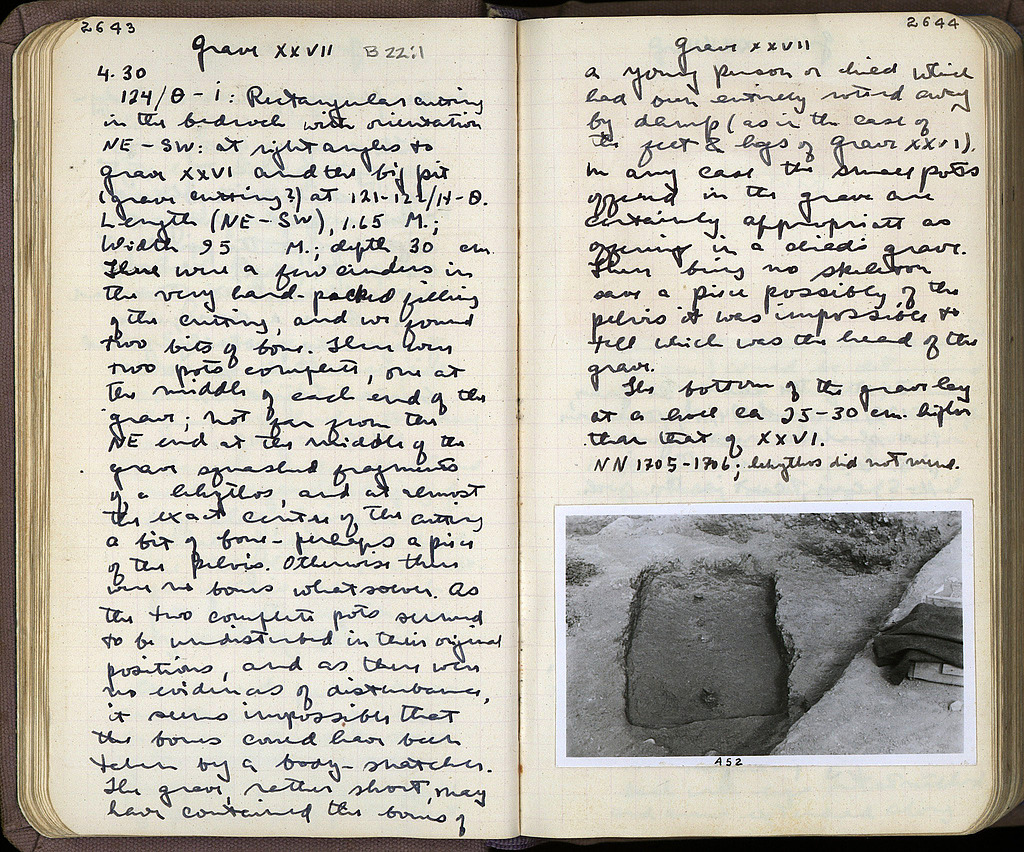 2643
Grave XXVII B 22:1
4.30
124/Θ - i: Rectangular cutting
in the bedrock with orientation
NE-SW: at right angles to
grave XXVI and the big pit
(grave cutting?) at 121-122/H-Θ.
Length (NE-SW), 1.65 M.;
Width 95 M.; depth 30 cm.
There were a few cinders in
the very hard-packed filling
of the cutting, and we found
two bits of bone. There were
two pots complete, one at
the middle of each end of the
grave; not far from the
NE end at the middle of the
grave squashed fragments
of a lekythos, and at almost
the exact centre of the cutting
a bit of bone - perhaps a piece
of the pelvis. Otherwise there
were no bones whatsoever. As
the two complete pots seemed
to be undisturbed in their original
positions, and as there were
no evidences of disturbance,
it seems impossible that
the bones could have been
taken by a body-snatcher.
The grave, rather short, may
have contained the bones of
2644
Grave XXVII
a young person or child which
had been entirely rotted away
by damp (as in the case of
the feet & legs of Grave XXVI).
In any case the small pots
offered in the grave are
certainly appropriate as
offering in a child's grave.
There being no skeleton
save a piece possibly of the
pelvis it was impossible to
tell which was the head of the
grave.
The bottom of the grave lay
at a level ca 25-30 cm. higher
than that of XXVI.
NN 1705-1706; lekythos did not mend.
452